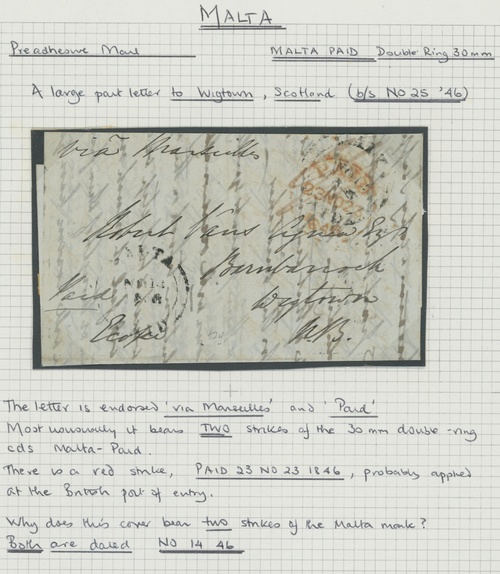 MALTA
Preadhesive Mail
MALTA PAID Double Ring 30mm
A large part letter to Wigtown, Scotland (b/s NO 25 '46)
via Marseilles
Robert Vans Agnew Esqr
Barnbarroch
Wigtown
N.B.
Paid
MALTA
The letter is endorsed 'via Marseilles' and 'Paid'
Most unusually it bears TWO strikes of the 30mm double-ring
cds Malta-Paid.
There is a red strike, PAID 23 NO 23 1846, probably applied
at the British port of entry.
Why does this cover bear two strikes of the Malta mark?
Both are dated NO 14 46